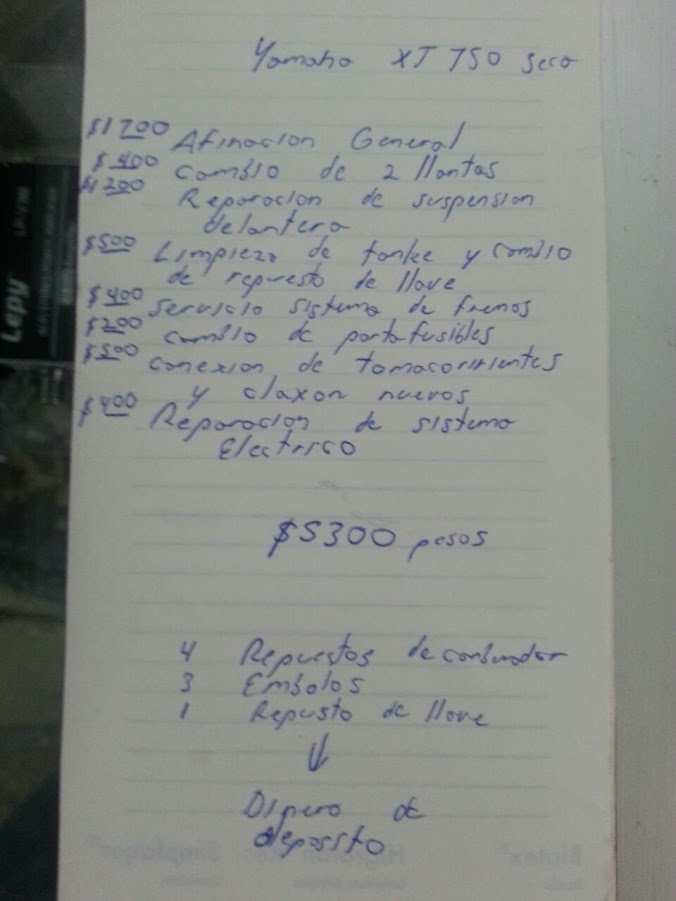 Yamaha XJ 750 seca
$1700 Afinacion General
$400 Cambio de 2 llantas
$1200 Reparacion de suspension
delantera
$500 Limpieza de tanke y cambio
de repuesto de llave
$400 servicio sistema de frenos
$200 cambio de portafusibles
$500 conexion de tomacorrientes
y claxon nuevos
$400 Reparacion de sistema
Electrico
$5300 pesos
4 Repuestos de carburador
3 Embolos
1 Repusto de llave
↓
Dinero de
deposito
Lepy